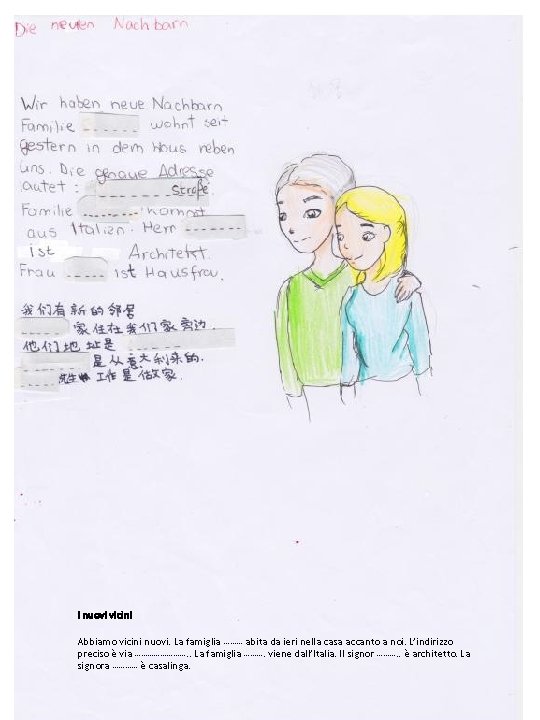 Die neuen Nachbarn
Wir haben neue Nachbarn
Familie ------ wohnt seit
gestern in dem Haus neben
uns. Die genaue Adresse
autet : ---------- Straße.
Familie ------ kommt
aus Italien. Herr ------
ist Architekt.
Frau ----- ist Hausfrau.
我们有新的邻居
----- 家住在我们家旁边.
他们地址是 ------
------ 是从意大利来的.
---- 先生 工作是做家.
I nuovi vicini
Abbiamo vicini nuovi. La famiglia ……… abita da ieri nella casa accanto a noi. L'indirizzo
preciso è via …………………….. La famiglia ………. viene dall'Italia. Il signor ……….. è architetto. La
signora ………… è casalinga.